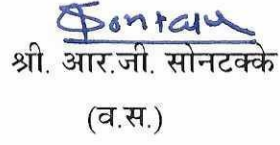 श्री. आर.जी. सोनटक्के
(व.स.)